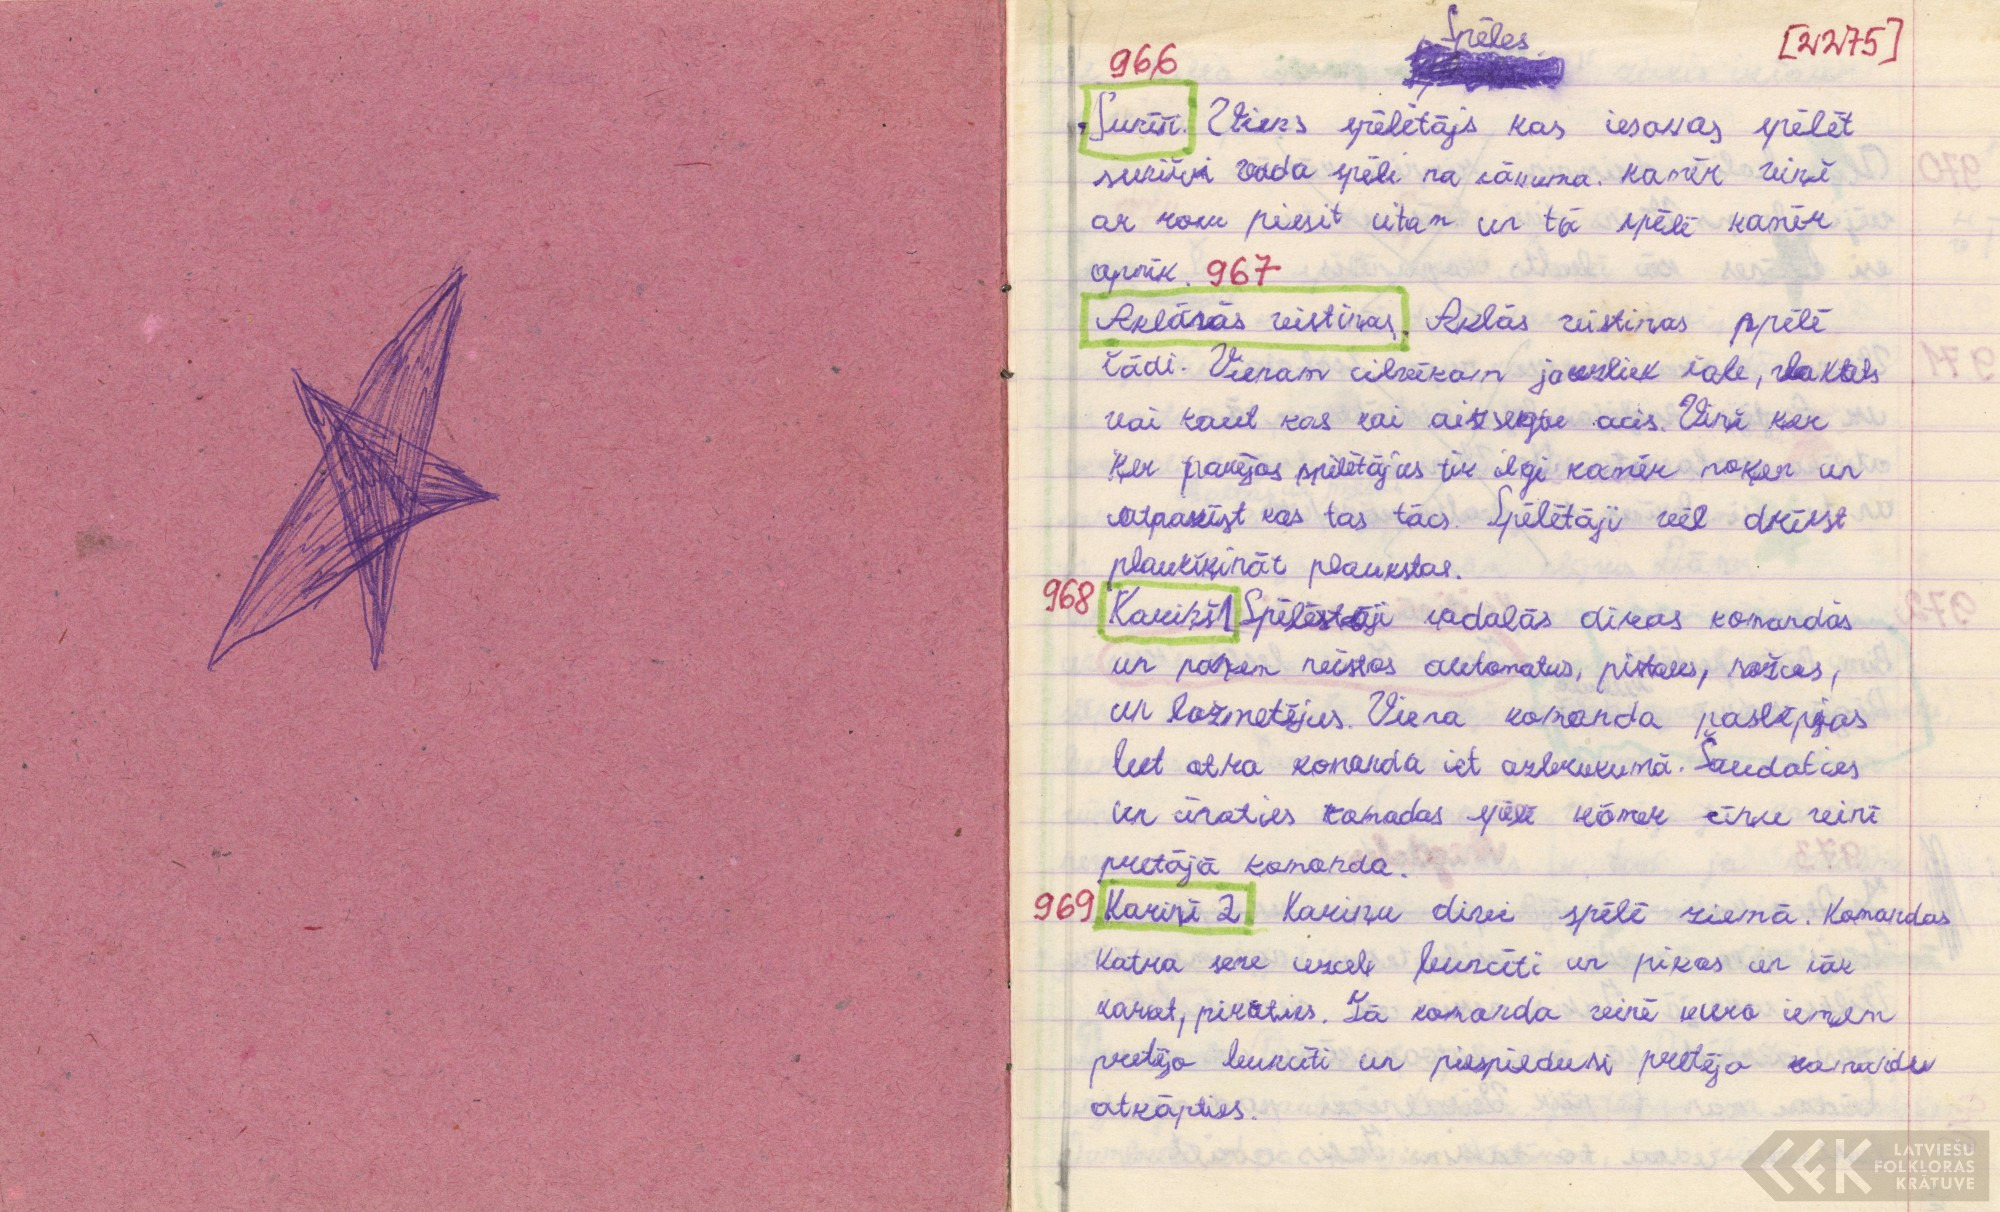 Spēles.
[2275]
966
Sunīši. Viens spēlētājs kas iesakas spēlēt
sunīšu vada spēli no sākuma. Kamēr viņš
ar roku piesit citam un tā spēlē kamēr
apnīk. 967
Aklās vistiņas. Aklās vistiņas spēlē
šādi. Vienam cilvēkam jāuzliek šale, vlakats
vai kaut kas vai aizsegtu acis. Viņš ķer
ķer parējos spēlētājus tik ilgi kamēr noķer un
atpazīst kas tas tāds. Spēlētāji vēl drīkst
plaukšķināt plaukstas.
968
Kariņš 1 Spēlētāji sadalās divas komandās
un paņem neīstos automatus, pistoles, nožus,
un ložmetējus. Viena komanda paslēpjas
bet otra komanda iet uzbrukumā. Šaudaties
un cīnaties komadas spēlē kāmēr cīņu vinē
pretējā komanda.
969 Kariņi 2 Kariņu divi spēlē ziemā. Komandas
Katra sev uzceļ burcīti un pikas un sāk
karot, pikoties. Tā komanda vinē kura ieņem
pretējo burcīti un piespiedusi pretējo
atkāpties.
LATVIEŠU
FOLKLORAS
KRĀTUVE